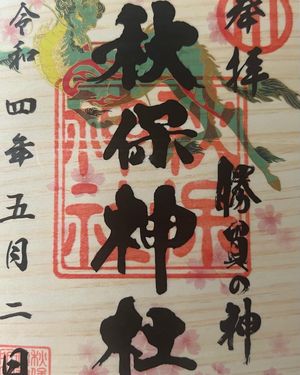 奉拝
勝負の神
秋保神社
秋保
神社
令和四年五月二日